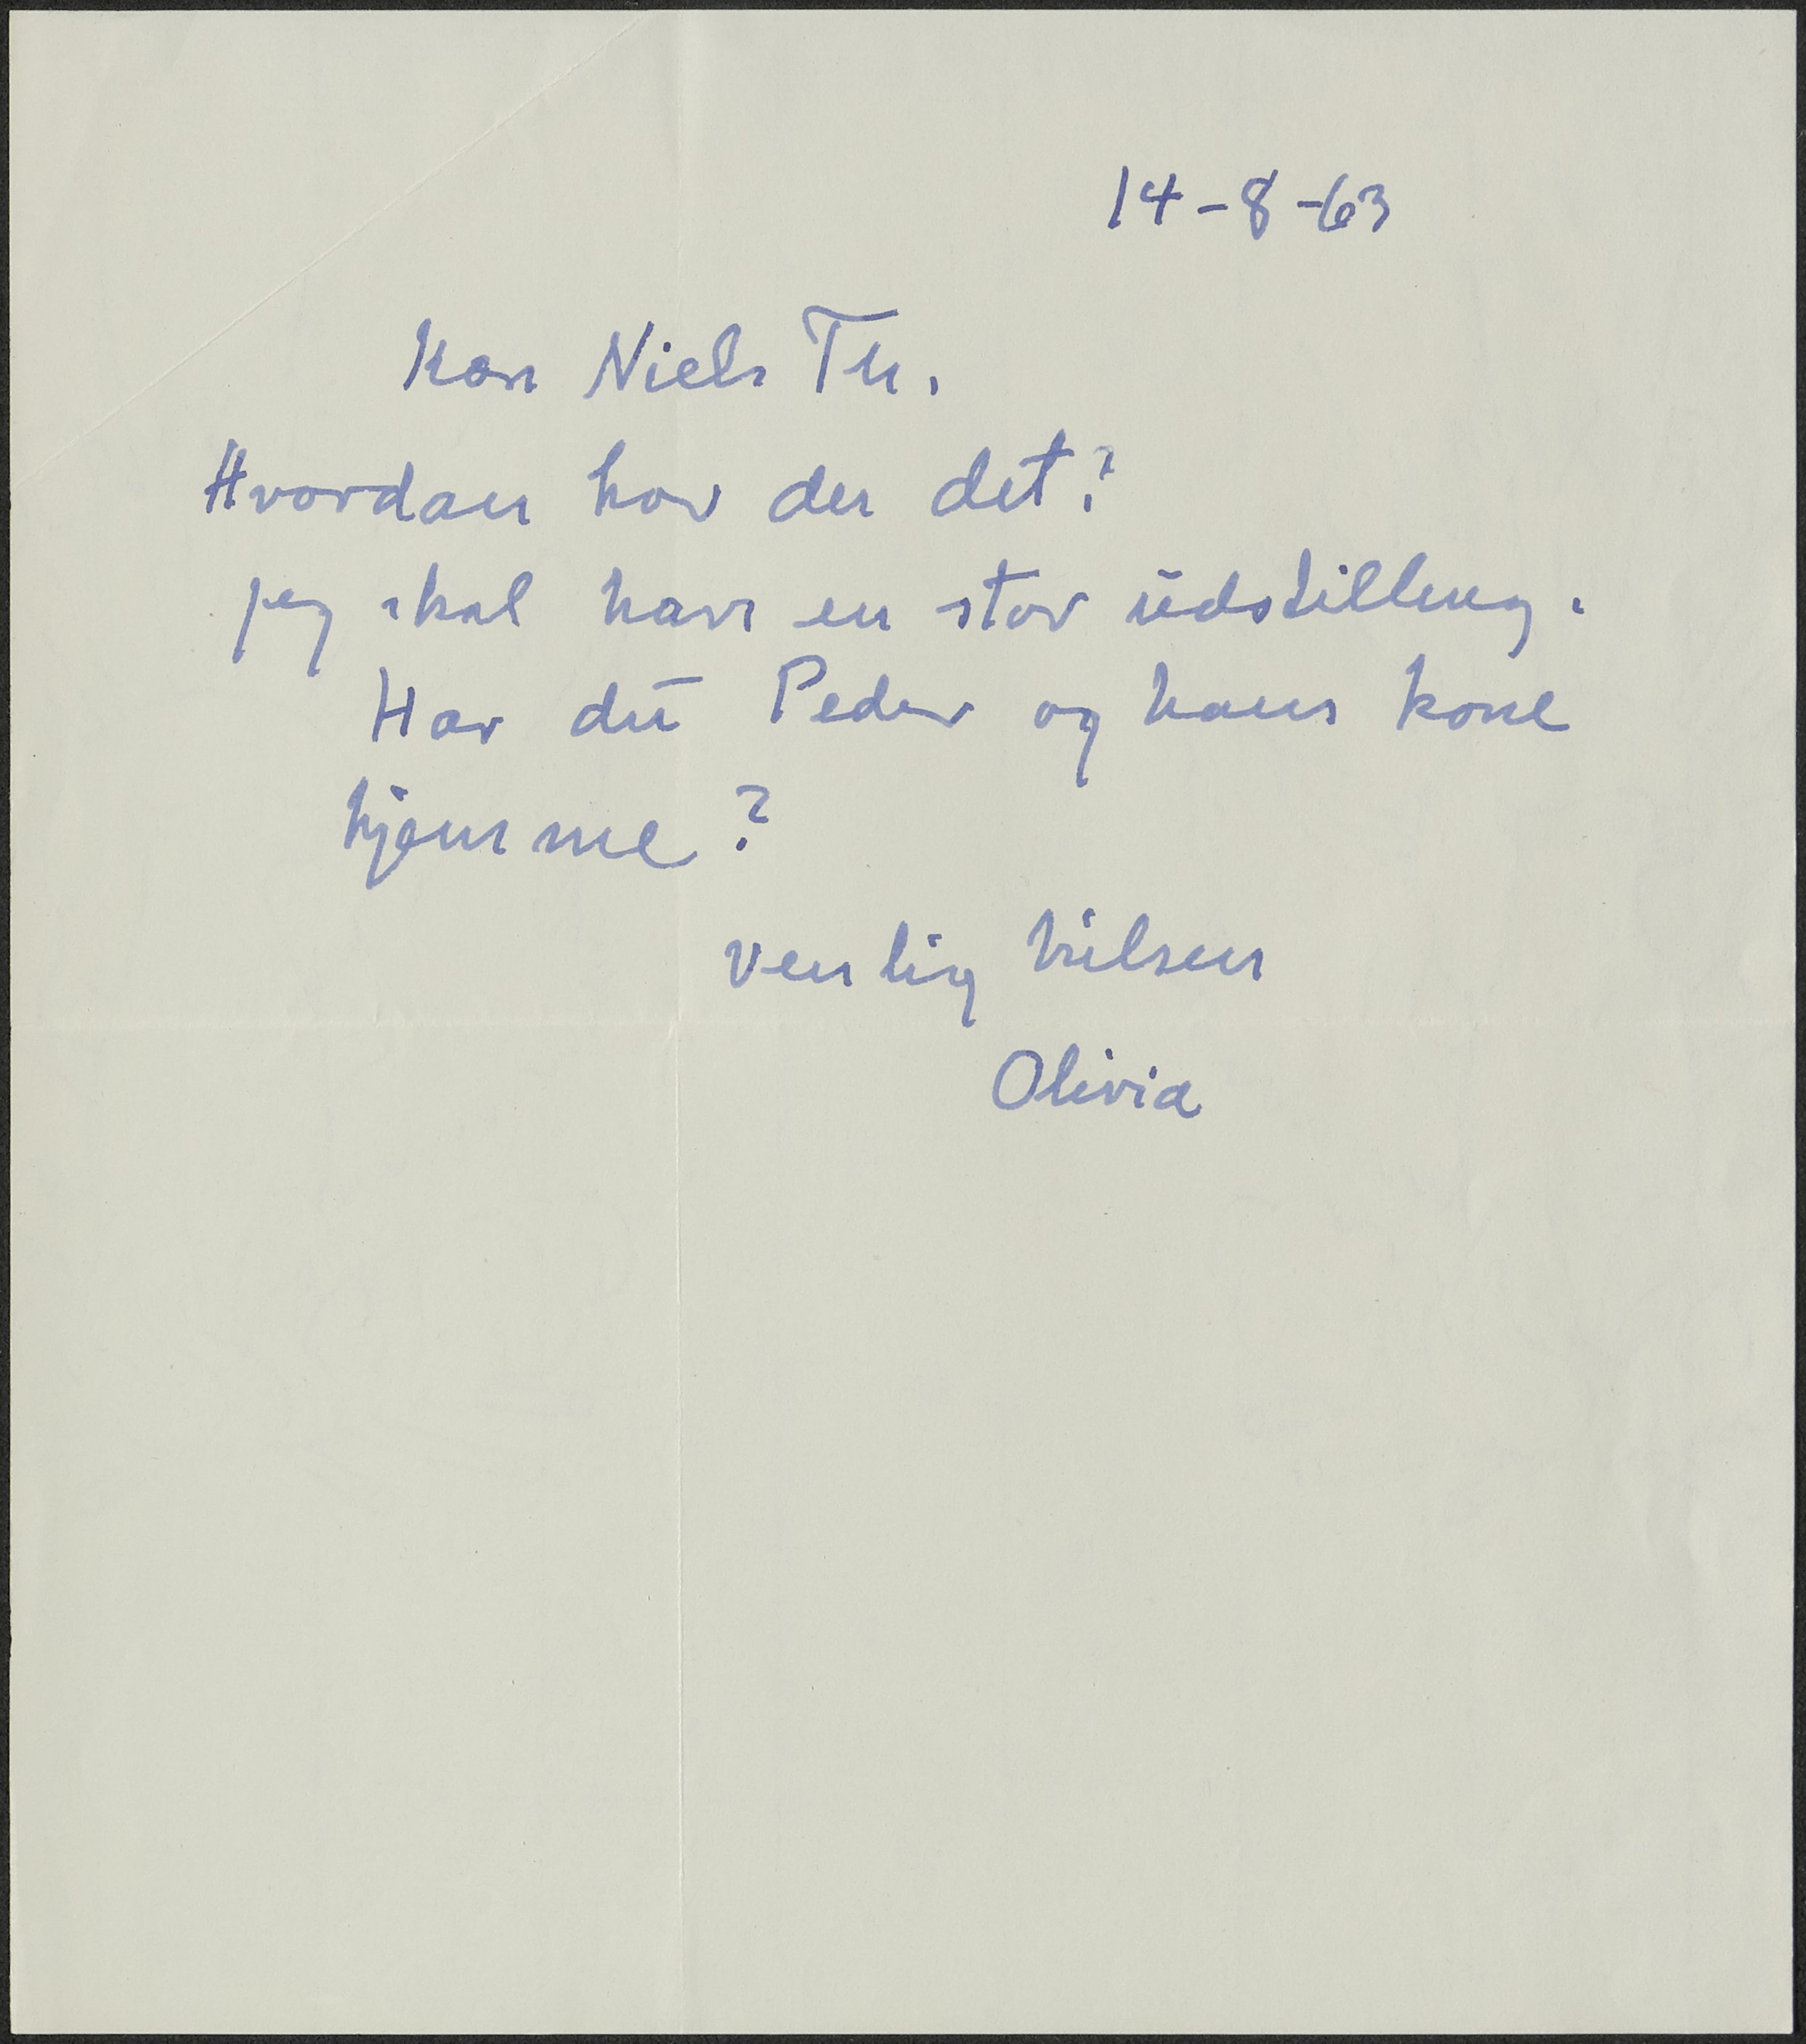 14-8-63
Kære Niels Th.
Hvordan har du det?
jeg skal have en stor udstilling.
Har du Peder og hans kone
hjemme?
venlig hilsen
Olivia